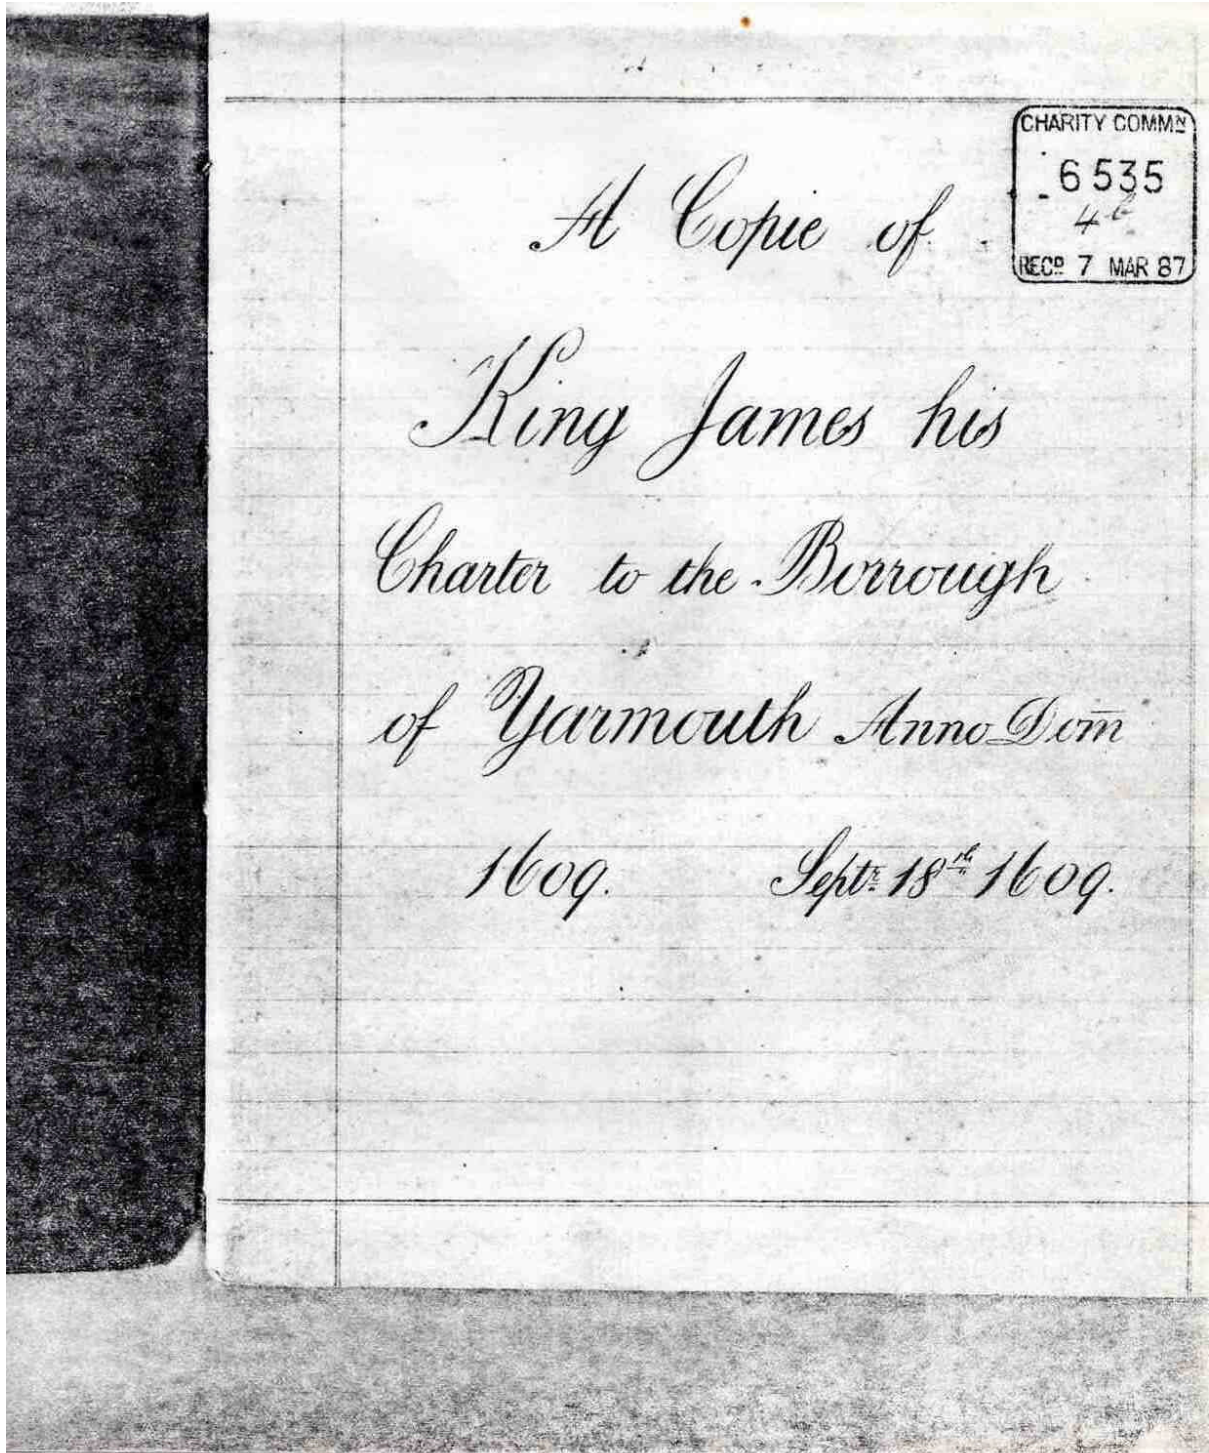 CHARITY COMMN
6535
4
RECD 7 MAR 87
A Copie of
King James his
Charter to the Borrough
of Yarmouth Anno Dom̄
1609. Septr. 18th 1609.